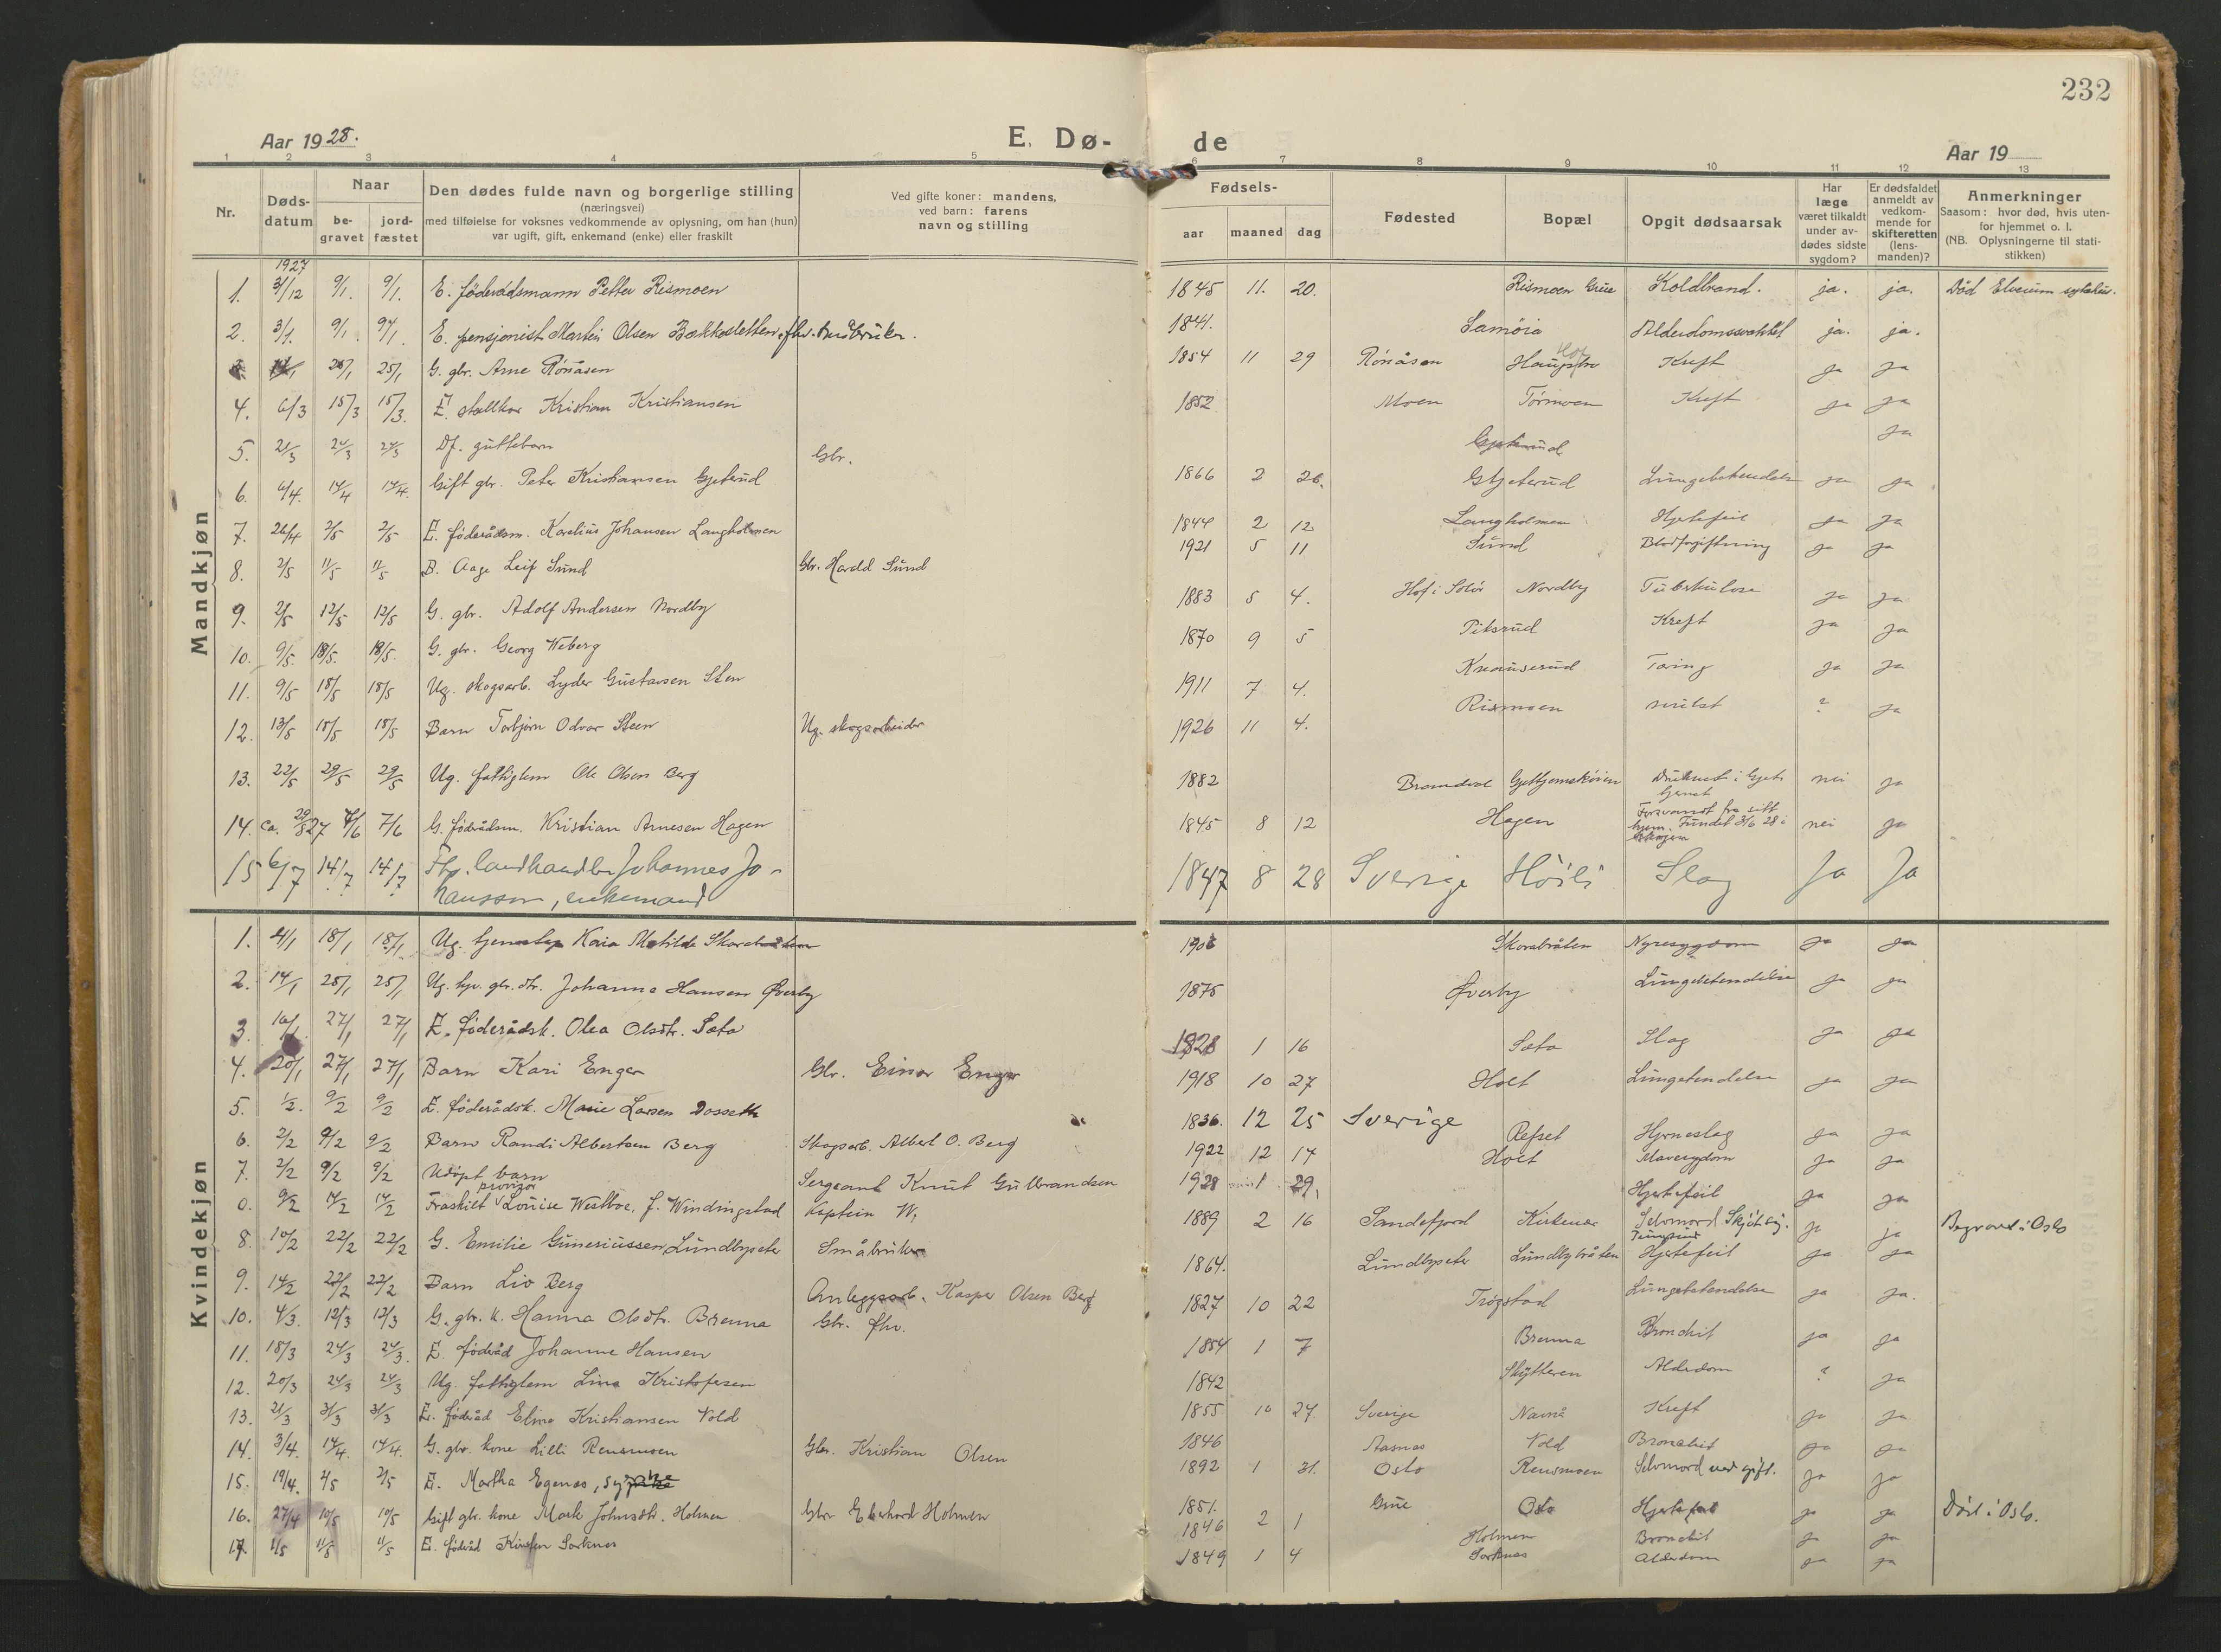 232
Aar 1928.
E. Dø-
de
Aar 19
1 2 3 4 5 6 7 8 9 10 11 12 13
Nr.
Døds-
datum
Naar
be-
gravet
jord-
fæstet
Den dødes fulde navn og borgerlige stilling
(næringsvei)
med tilføielse for voksnes vedkommende av oplysning, om han (hun)
var ugift, gift, enkemand (enke) eller fraskilt
Ved gifte koner: mandens,
ved barn: farens
navn og stilling
Fødsels-
aar
maaned
dag
Fødested
Bopæl
Opgit dødsaarsak
Har
læge
været tilkaldt
under av-
dødes sidste
sygdom?
Er dødsfaldet
anmeldt av
vedkom-
mende for
skifteretten
(lens-
manden)?
Anmerkninger
Saasom: hvor død, hvis uten-
for hjemmet o. l.
(NB. Oplysningerne til stati-
stikken)
Mandkjøn
1927
1. 31/12 9/1. 9/1. E. føderådsmann Petter Rismoen 1845 11. 20. Rismoen Grue Koldbrand. ja. ja. Død Elverum sykehus.
2. 3/1. 9/1. 9/1. E. pensjonist Martin Olsen Bækkesletten, fhv. småbruker. 1841. Samöia Alderdomssvakhet ja. ja.
3. 25/1 25/1 G. gbr. Arne Rönåsen 1854 11 29 Rönåsen Kreft ja ja
4. 6/3 15/3 15/3. E. Kristian Kristiansen 1852 Moen Törmoen Kreft ja ja
5. 21/3 24/3 24/3 Df. guttebarn Gbr. Gjeterud ja
6. 6/4. 14/4 14/4. Gift gbr. Peter Kristiansen Gjeterud 1866 2 26. Gtjeterud Lungebetendelse ja ja
7. 26/4 2/5 2/5 E. föderådsm. Karelius Johansen Langholmen 1844 2 12 Langholmen Hjertefeil ja ja
8. 2/5 11/5 11/5 B. Aage Leif Sund Gbr. Harald Sund 1921 5 11 Sund Blodforgiftning ja ja
9. 2/5 12/5 12/5 G. gbr. Adolf Andersen Nordby 1883 5 4. Hof i Solör Nordby Tuberkulose ja ja
10. 9/5. 18/5. 18/5. G. gbr. Georg Weberg 1870 9 5 Pitsrud Kreft ja ja
11. 9/5 18/5 18/5 Ug. skogsarb. Lyder Gustavsen Sten 1911 7 4. Knauserud Tæring ja ja
12. 13/5 18/5 18/5 Barn Torbjörn Odvar Steen Ug. skogsarbeider 1926 11 4. Rismoen ? ja
13. 22/5 29/5 29/5 Ug. fattiglem Ole Olsen Berg 1882 Brandval Druknet i Gjets
tjernet nei ja
14. ca. 29/8 27 7/6 7/6 G. föderådsm. Kristian Arnesen Hagen 1845 8 12 Hagen Forsvandt fra sitt
hjem. Fundet 3/6 28 i
skogen nei ja
15 6/7 14/7 14/7 Fhv. landhandler Johannes Jo-
hansson, enkemand 1847 8 28 Sverige Höili Slag Ja Ja
Kvindekjøn
1. 4/1 18/1 18/1. Ug. Kaia Matilde Skarabråten Skarabråten Nyresygdom ja ja
2. 14/1 25/1 25/1 Ug. fhv. gbr. dtr. Johanne Hansen Øverby 1875 Øverby Lungebetendelse ja ja
3. 16/1 27/1 27/1 E. föderådsk. Olea Olsdtr. Sæta 1828 1 16 Sæta Slag ja ja
4. 20/1 27/1 27/1 Barn Kari Enger Gbr. Einar Enger 1918 10 27 Holt Lungetendelse ja ja
5. 1/2. 9/2 9/2 E. föderådsk. Marie Larsen Dosseth 1836. 12 25 Sverige Refset Hjerneslag ja ja
6. 2/2 9/2 9/2 Barn Randi Albertsen Berg Skogsarb. Albert O. Berg 1922 12 14 Holt Mavesygdom ja ja
7. 2/2 9/2 9/2 Udöpt barn Sergeant Knut Gulbrandsen 1928 1 29. Hjertefeil ja ja
0. 9/2 14/2 14/2 Fraskilt Louise Westboe, f. Windingstad Kaptein W. 1889 2 16 Sandefjord Kirkenær Selvmord Skjöt sig. ja ja Begravet i Oslo
8. 10/2 22/2 22/2 G. Emilie Guneriussen Lundbyseter Småbruker 1864. Lundbyseter Lundbybråten Hjertefeil ja ja
9. 14/2 22/2 22/2 Barn Liv Berg Anleggsarb. Kasper Olsen Berg 1827 10 22 Trögstad Lungebetendelse ja ja.
10. 4/3. 12/3 12/3 G. gbr. k. Hanna Olsdtr. Brenna Gbr. fhv. 1854 1 7 Brenna Bronchit ja ja
11. 18/3 24/3 24/3. E. föderåd Johanne Hansen 1842 Skytteren Alderdom ? ja
12. 20/3 24/3 24/3 Ug. fattiglem Lina Kristofersen 1855 10 27 Sverige Navnå Kreft ja ja
13. 21/3 31/3 31/3 E. föderåd Eline Kristiansen Vold 1846 Aasnes Vold Bronchit ja ja
14. 3/4. 14/4. 14/4. G. gbr. kone Lilli Rensmoen Gbr. Kristian Olsen 1892 1 31. Oslo Rensmoen Selvmord ved gift. ja ja
15. 19/4. 2/5 2/5 E. Martha Egenæs, 1851. Grue Oslo Hjertefeil ja ja Död i Oslo.
16. 27/4 10/5 10/5 Gift gbr. kone Marte Johnsdtr. Holmen Gbr Eberhard Holmen 1846 2 1 Holmen Bronchit ja ja
17. 1/5 11/5 11/5 E. föderåd Kirsten Sorknes 1849 1 4 Sorknes Alderdom ja ja